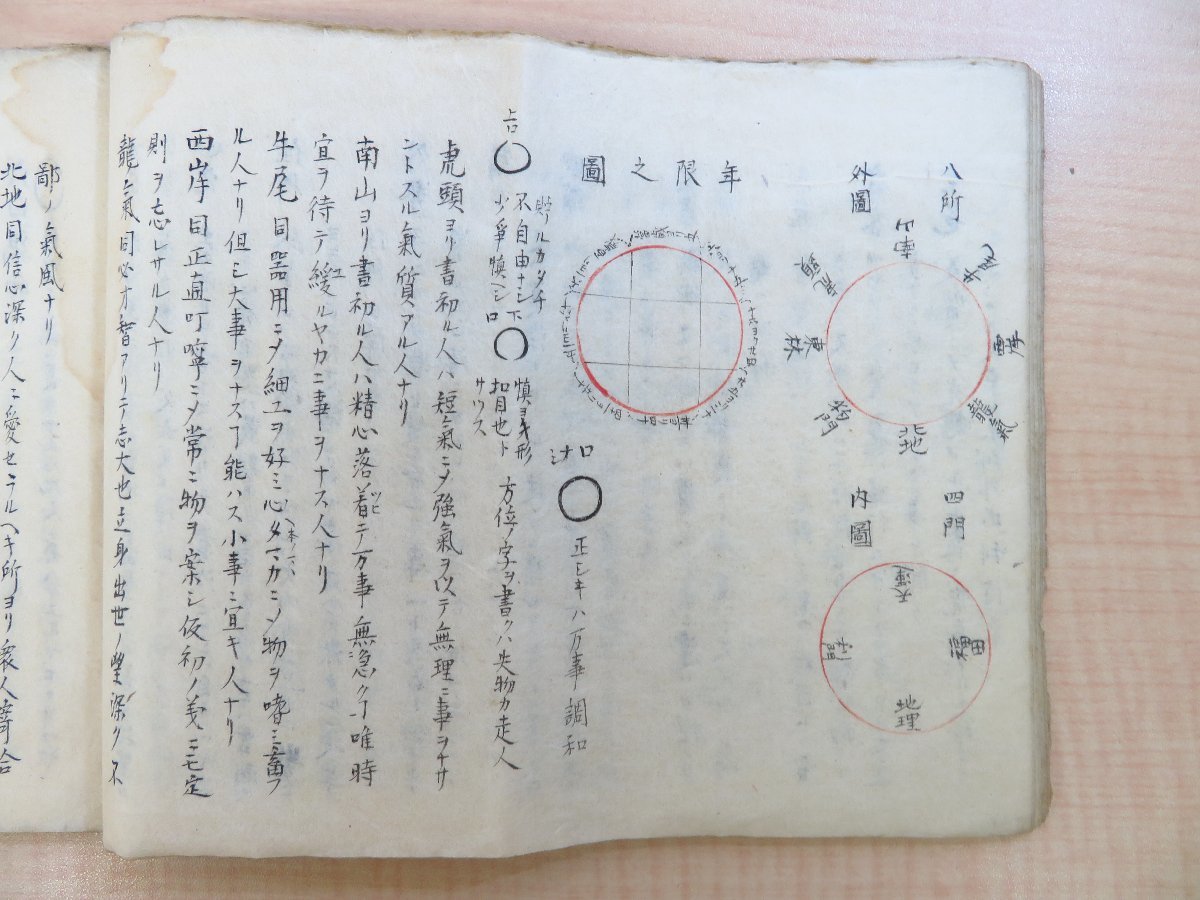 八所
外圖
南山
牛尾
西岸
龍氣
北地
東林
虎頭
四門
内圖
天運
福田
地理
利門
年限之圖
口
正シキハ万事調和
上口
貯ルカタチ
不自由ナシ下
少爭慎ヘシ
口
慎ヨキ形
方位ノ字ヲ書クハ失物カ走人
虎頭ヨリ書初ル人ハ短氣ニメ強氣ヲ以テ無理ニ事ヲナサ
ントスル氣質アル人ナリ
南山ヨリ書初ル人ハ精心落着テ万事無急クヿ唯時
宜ヲ待テ緩ルヤカニ事ヲナス人ナリ
牛尾同器用ニメ細工ヲ好ミ心タマカニメ物ヲ嗜ミ畜フ
ル人ナリ但シ大事ヲナスヿ能ハス小事ニ宜キ人ナリ
西岸同正直叮嚀ニメ常ニ物ヲ案シ仮初ノ義ニモ定
則ヲ忘レサル人ナリ
龍氣同必才智アリテ志大也立身出世ノ望深ク不
鄙ノ氣風ナリ
北地同信心深ク人ニ愛セラルヘキ所ヨリ衆人寄合